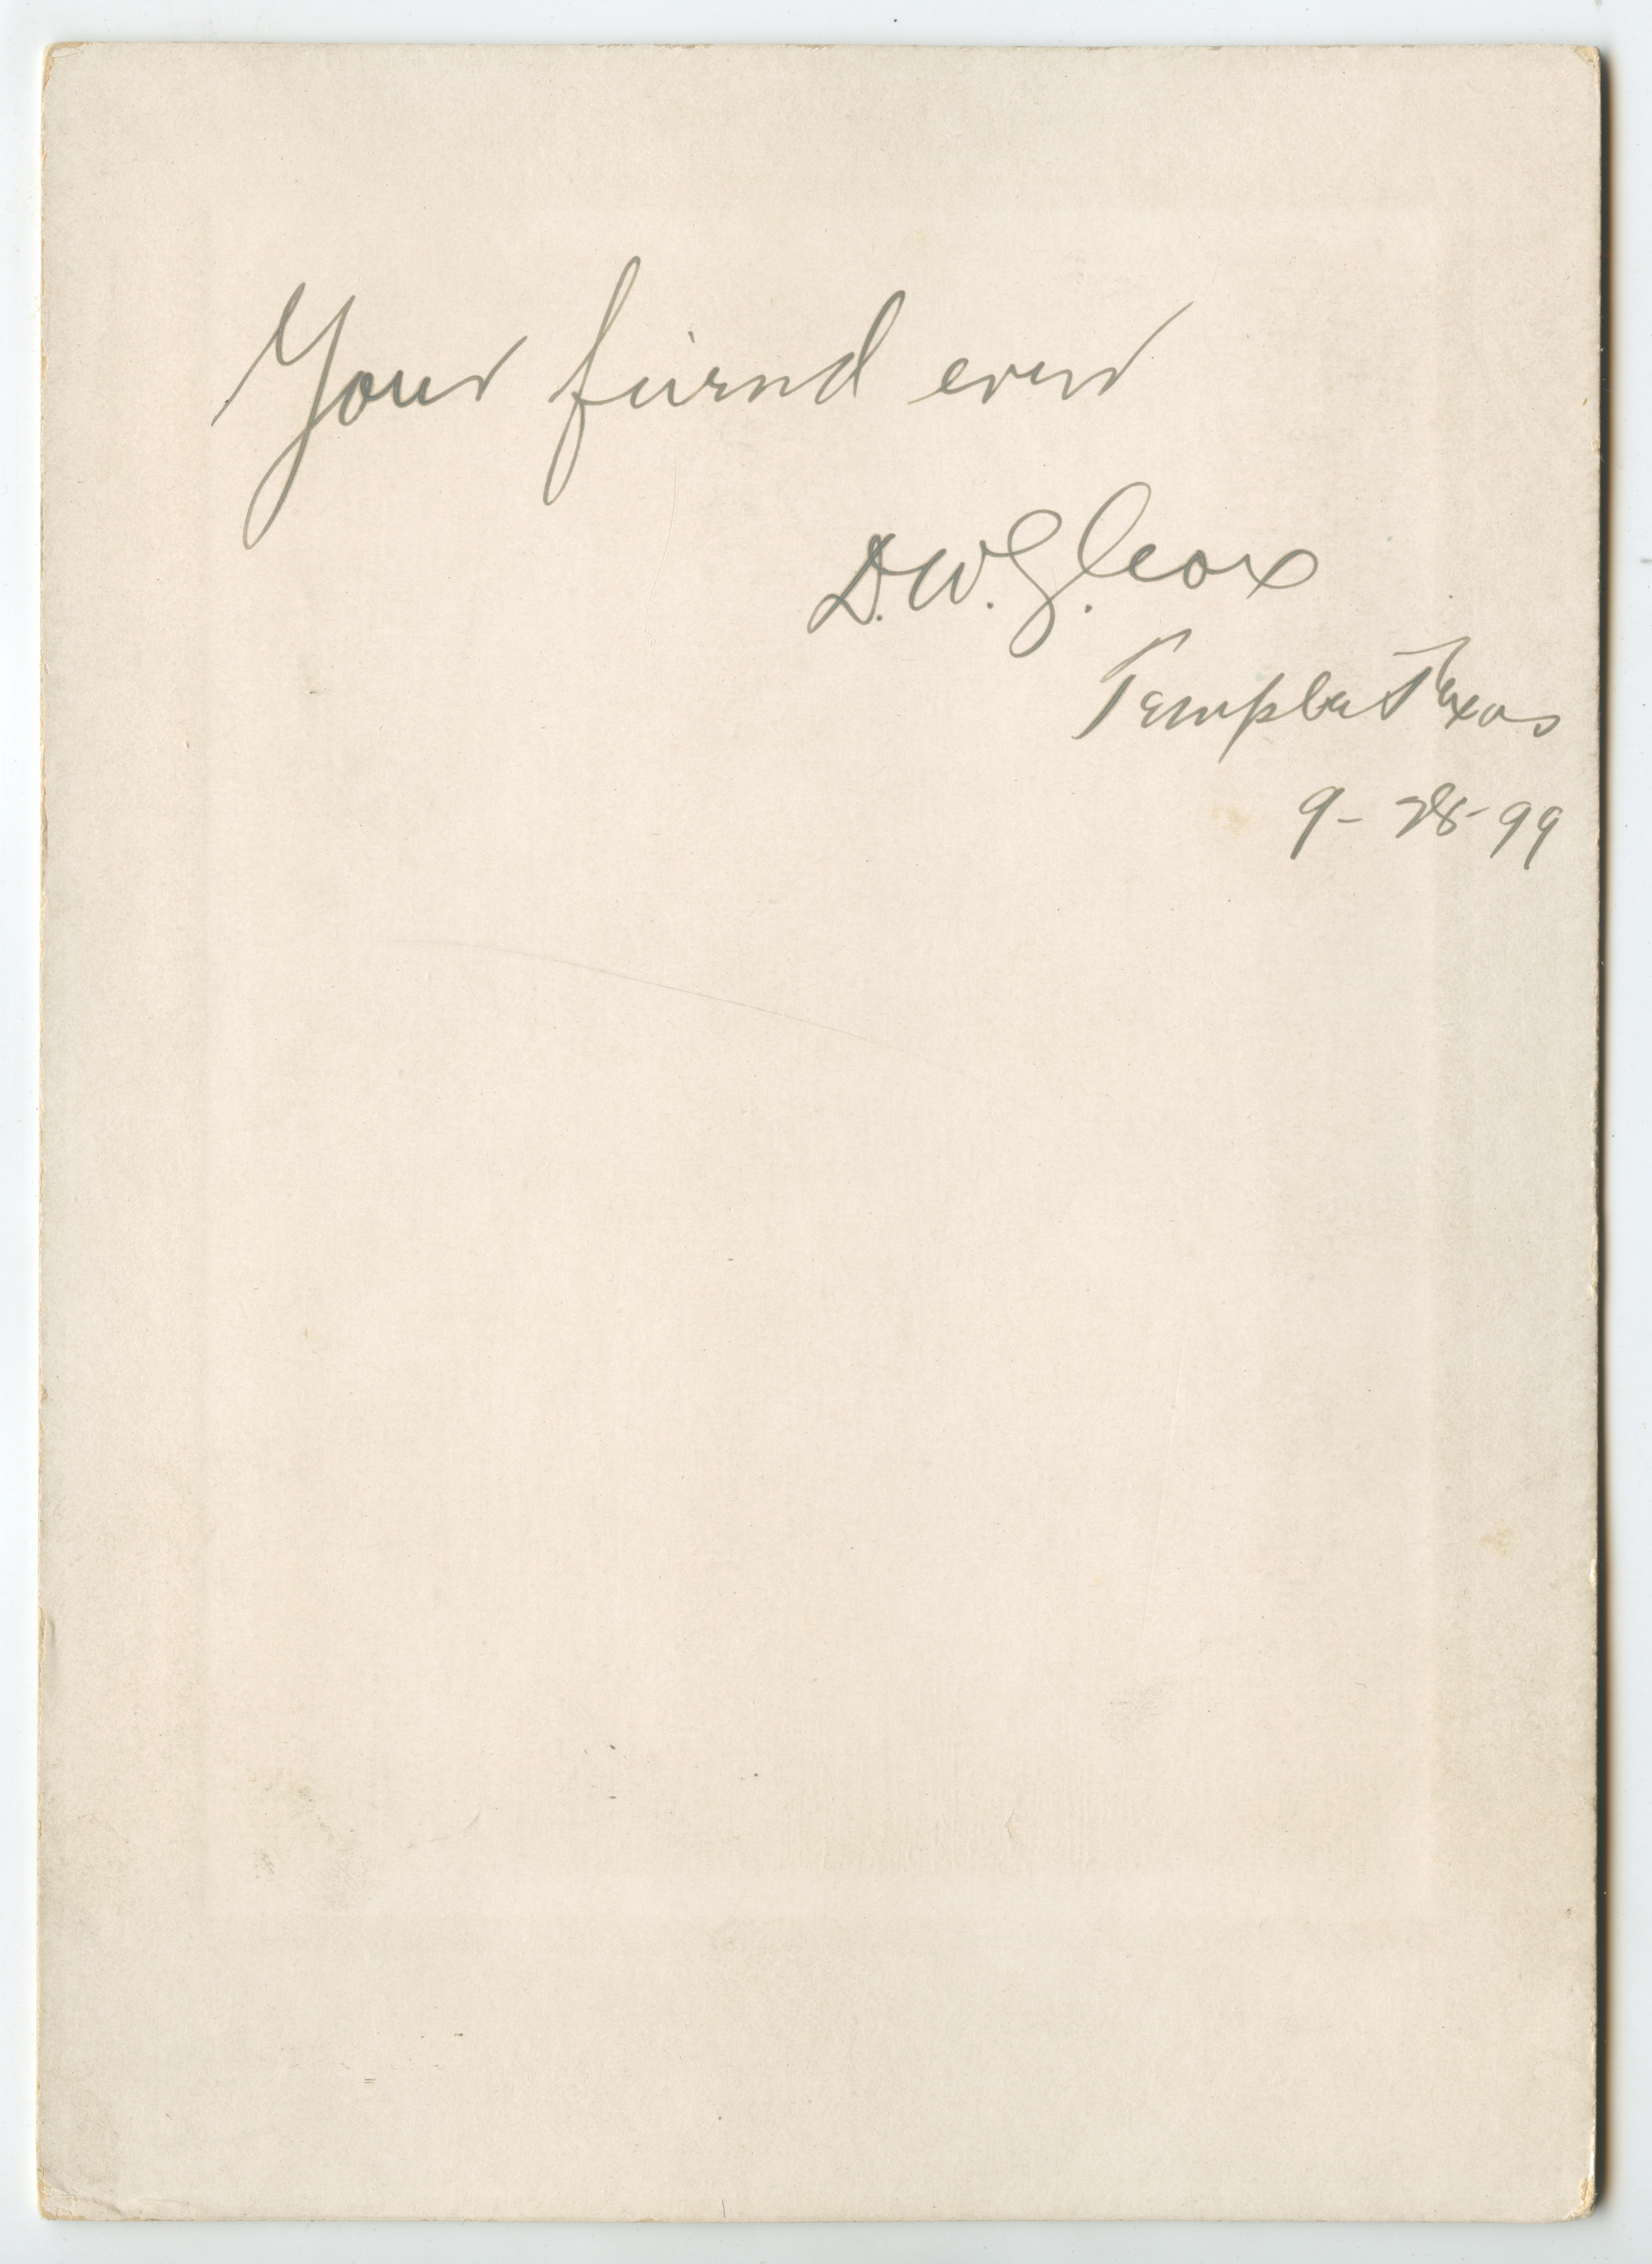 Your friend ever
D.W.G. Cox
Temple Texas
9-28-99